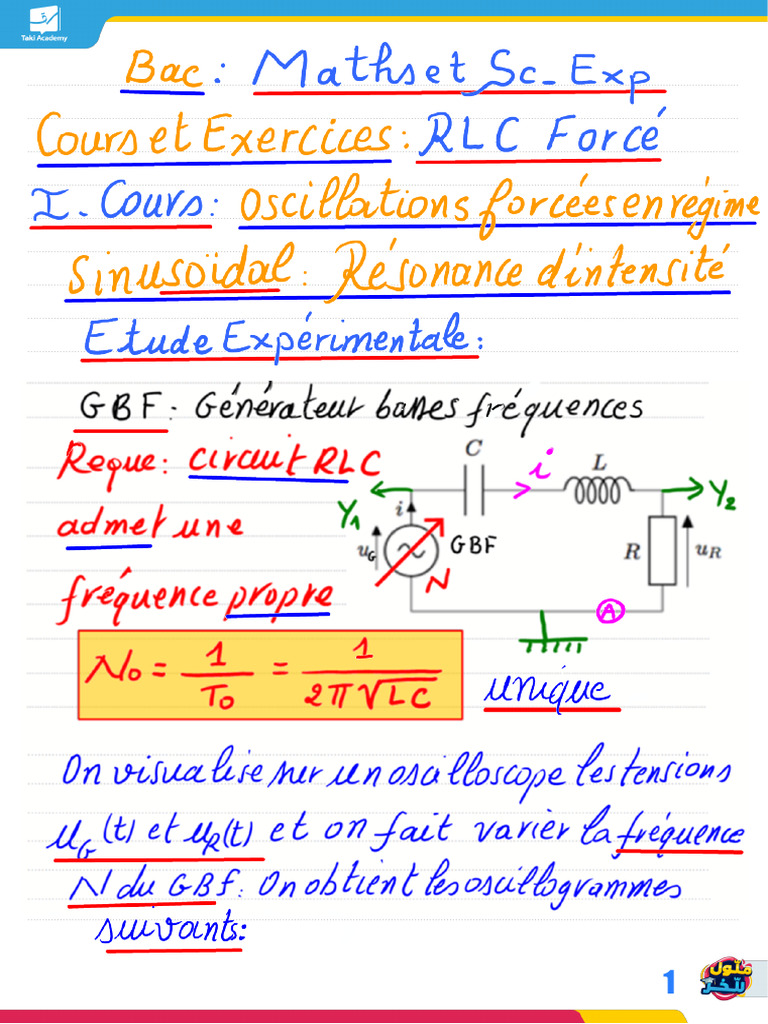 Taki Academy
Bac : Maths et Sc_Exp
Cours et Exercices : RLC Forcé
I. Cours : Oscillations forcées en régime
Sinusoïdal : Résonance d'intensité
Etude Expérimentale :
GBF : Générateur basses fréquences
Reque : circuit RLC
admet une
fréquence propre
N₀ = 1/T₀ = 1/2π√LC
unique
C
i
L
Y₁
Y₂
i
u_G
GBF
N
R
u_R
A
On visualise sur un oscilloscope les tensions
u_G(t) et u_R(t) et on fait varier la fréquence
N du GBF. On obtient les oscillogrammes
suivants :
1
متّول
بتّخر